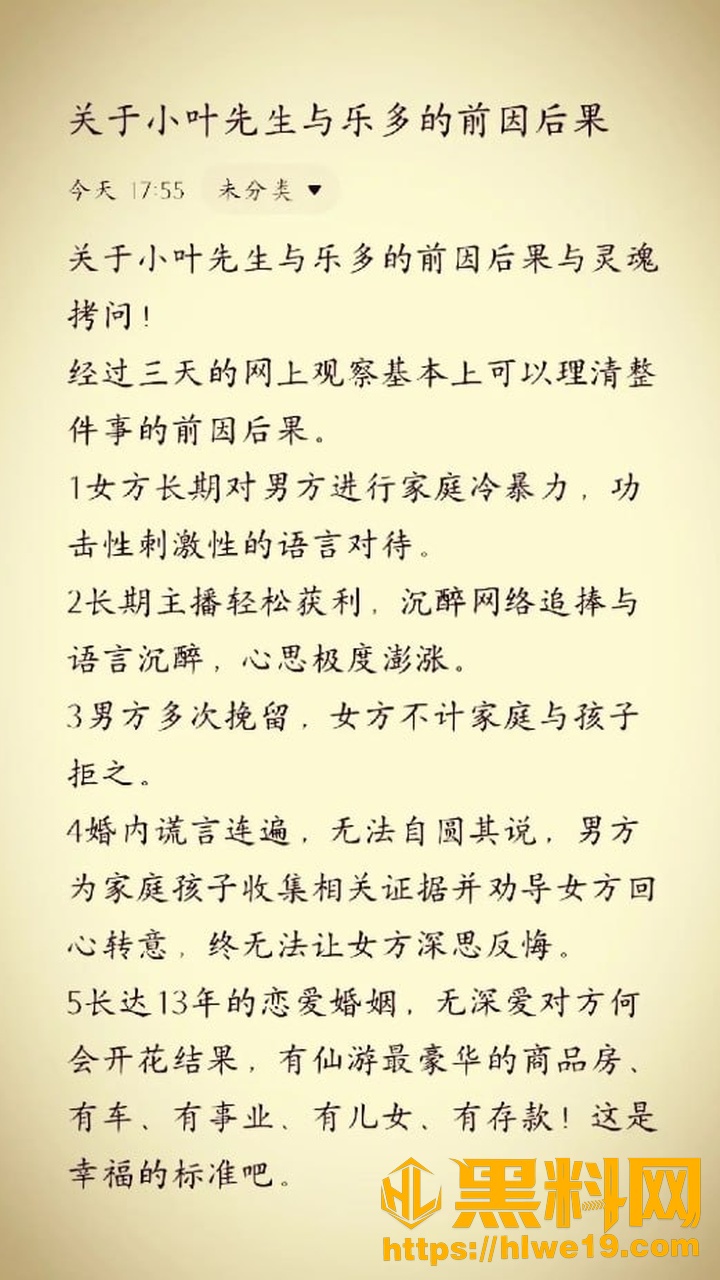 关于小叶先生与乐多的前因后果
今天 17:55 未分类
关于小叶先生与乐多的前因后果与灵魂
拷问！
经过三天的网上观察基本上可以理清整
件事的前因后果。
1女方长期对男方进行家庭冷暴力，功
击性刺激性的语言对待。
2长期主播轻松获利，沉醉网络追捧与
语言沉醉，心思极度澎涨。
3男方多次挽留，女方不计家庭与孩子
拒之。
4婚内谎言连遍，无法自圆其说，男方
为家庭孩子收集相关证据并劝导女方回
心转意，终无法让女方深思反悔。
5长达13年的恋爱婚姻，无深爱对方何
会开花结果，有仙游最豪华的商品房、
有车、有事业、有儿女、有存款！这是
幸福的标准吧。
HL 黑料网
https://hlwe19.com